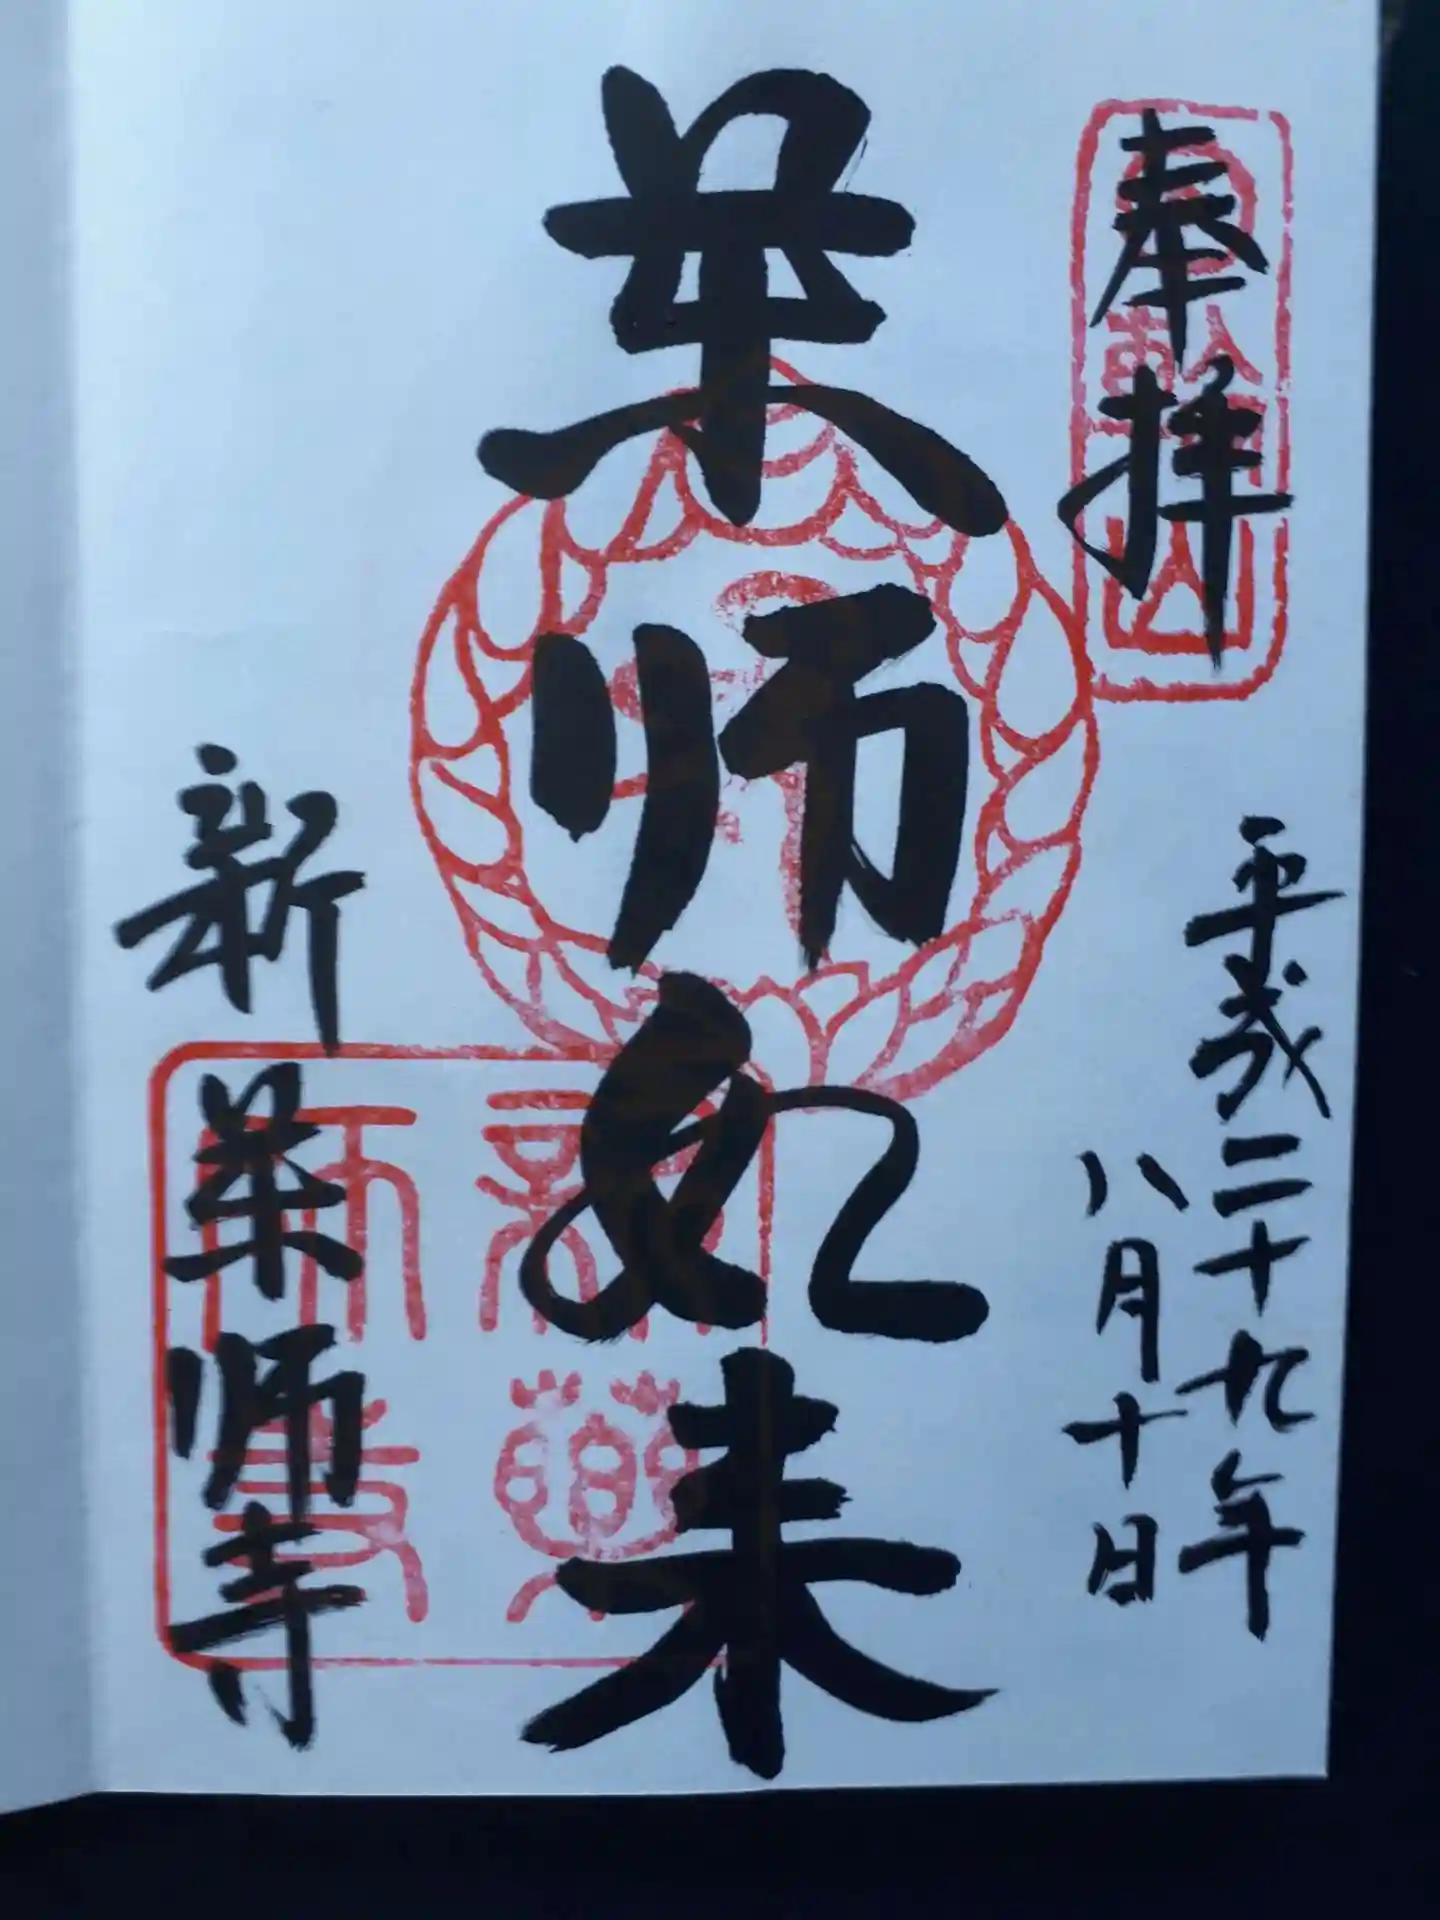 奉拝
平成二十九年
八月十日
薬师如来
新薬师寺